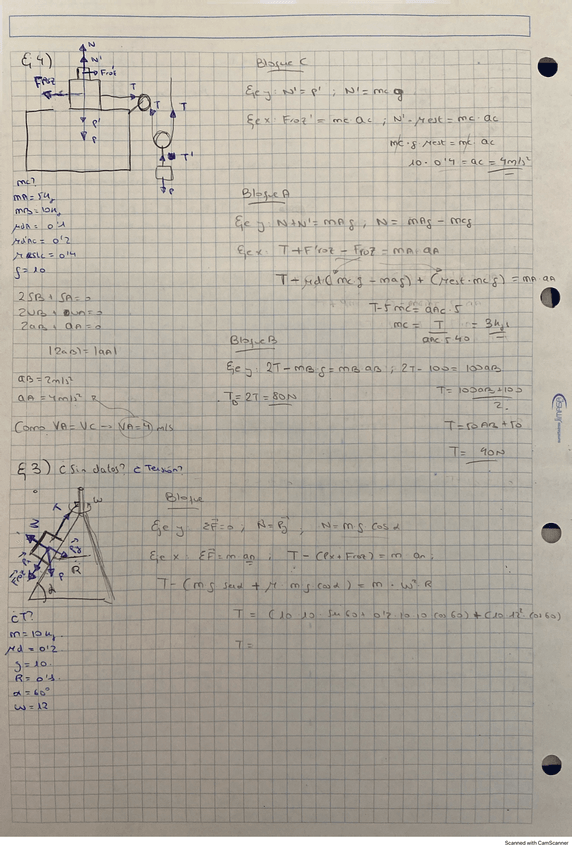 Ej 4)
N
N'
Froz'
Froz
T
T
T
P'
P
T'
P
mc?
mA = 5kg
mB = 10kg
μdA = 0'1
μdAC = 0'2
μestC = 0'4
g = 10
2SB + SA = 0
2vB + vA = 0
2aB + aA = 0
|2aB| = |aA|
aB = 2m/s²
aA = 4m/s²
Como VA = VC → VA = 4 m/s
Bloque C
Eje y: N' = P' ; N' = mc g
Eje x: Froz' = mc ac ; N' · μest = mc · ac
mc · g μest = mc · ac
10 · 0'4 = ac = 4m/s²
Bloque A
Eje y: N + N' = mAg ; N = mAg - mcg
Eje x: T + F'roz - Froz = mA · aA
T - μd (mcg - mag) + (μest · mcg) = mA · aA
T - 5 mc = aAc · 5
mc = T / aAc · 5 · 40 = 3kg
Bloque B
Eje y: 2T - mB · g = mB · aB ; 2T - 100 = 10 aB
T = 10aB + 100 / 2
TB = 2T = 80N
T = 5 aB + 50
T = 40N
Ej 3) c Sin datos? c Tensión?
T
w
N
Py
R
P
α
cT?
m = 10kg
μd = 0'2
g = 10
R = 0'1
α = 60°
ω = 12
Bloque
Eje y: ΣF = 0 ; N = Py ; N = mg cosα
Eje x: ΣF = m an ; T - (Px + Froz) = m an ;
T - (mg senα + μ mg cosα) = m · ω² R
T = (10 · 10 · Sen 60 + 0'2 · 10 · 10 cos 60) + (10 · 12² cos 60)
T =
Scanned with CamScanner